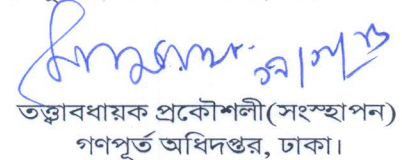 তত্ত্বাবধায়ক প্রকৌশলী(সংস্হাপন)
গণপূর্ত অধিদপ্তর, ঢাকা।